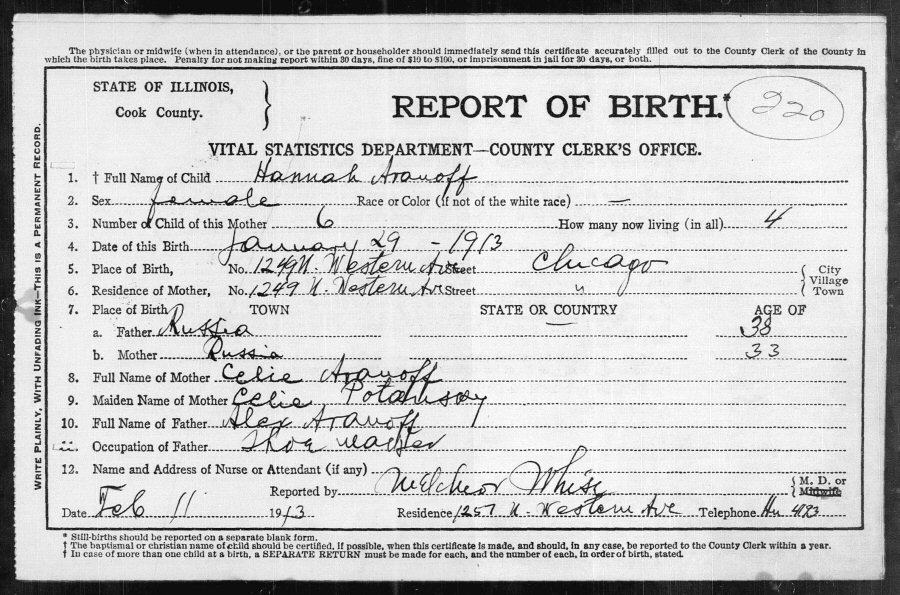 The physician or midwife (when in attendance), or the parent or householder should immediately send this certificate accurately filled out to the County Clerk of the County in
which the birth takes place. Penalty for not making report within 30 days, fine of $10 to $100, or imprisonment in jail for 30 days, or both.
STATE OF ILLINOIS,
Cook County.
REPORT OF BIRTH.*
220
VITAL STATISTICS DEPARTMENT—COUNTY CLERK'S OFFICE.
1. † Full Name of Child Hannah Aranoff
2. Sex female Race or Color (if not of the white race) —
3. Number of Child of this Mother 6 How many now living (in all) 4
4. Date of this Birth January 29 - 1913
5. Place of Birth, No. 1249 N. Western Ave Street Chicago City
Village
6. Residence of Mother, No. 1249 N. Western Ave Street " Town
7. Place of Birth TOWN STATE OR COUNTRY AGE OF
a. Father Russia 38
b. Mother Russia 33
8. Full Name of Mother Celie Aranoff
9. Maiden Name of Mother Celie
10. Full Name of Father Alex Aranoff
11. Occupation of Father Shoe
12. Name and Address of Nurse or Attendant (if any)
Reported by Melchior White M. D. or
Midwife
Date Feb 11 1913 Residence 1257 N. Western Ave Telephone Hu 4183
* Still-births should be reported on a separate blank form.
† The baptismal or christian name of child should be certified, if possible, when this certificate is made, and should, in any case, be reported to the County Clerk within a year.
‡ In case of more than one child at a birth, a SEPARATE RETURN must be made for each, and the number of each, in order of birth, stated.
WRITE PLAINLY, WITH UNFADING INK—THIS IS A PERMANENT RECORD.